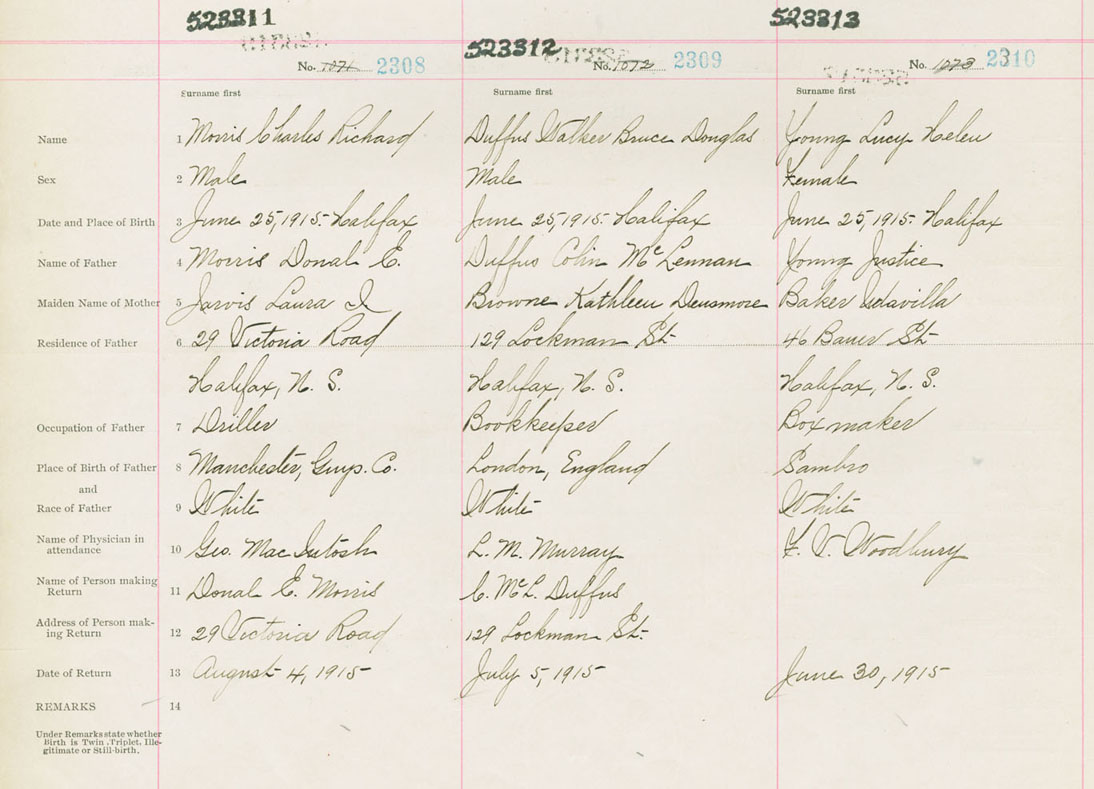 523311
523312
523313
No. 1071 2308
No. 1072 2309
No. 1073 2310
Surname first Surname first Surname first
Name 1 Morris Charles Richard Duffus Walker Bruce Douglas Young Lucy Helen
Sex 2 Male Male Female
Date and Place of Birth 3 June 25, 1915- Halifax June 25, 1915- Halifax June 25, 1915- Halifax
Name of Father 4 Morris Donal E. Duffus Colin McLennan Young Justice
Maiden Name of Mother 5 Jarvis Laura Browne Kathleen Densmore Baker
Residence of Father 6 29 Victoria Road 129 Lockman St. 46 Bauer St.
Halifax, N. S. Halifax, N. S. Halifax, N. S.
Occupation of Father 7 Driller Bookkeeper Boxmaker
Place of Birth of Father 8 Manchester, Guys. Co. London, England Sambro
and
Race of Father 9 White White White
Name of Physician in
attendance 10 Geo. MacIntosh L. M. Murray F. V. Woodbury
Name of Person making
Return 11 Donal E. Morris C. McL. Duffus
Address of Person mak-
ing Return 12 29 Victoria Road 129 Lockman St.
Date of Return 13 August 4, 1915 July 5, 1915 June 30, 1915
REMARKS 14
Under Remarks state whether
Birth is Twin, Triplet, Ille-
gitimate or Still-birth.